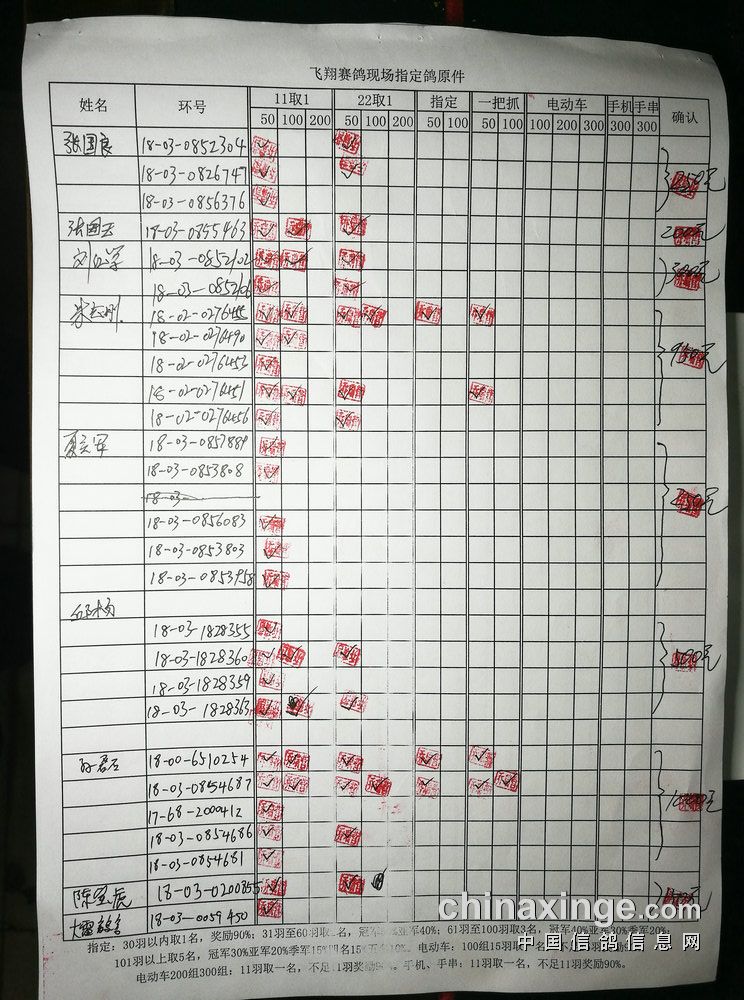 飞翔赛鸽现场指定鸽原件
姓名 环号 11取1 22取1 指定 一把抓 电动车 手机 手串 确认
50 100 200 50 100 200 50 100 50 100 100 200 300 300 300
张国良 18-03-0852304
18-03-0826747
18-03-0856376
张国玉 18-03-0855463
18-03-0852102
18-03-0852106
18-02-0276455
18-02-0276490
18-02-0276453
18-02-0276451
18-02-0276456
18-03-0857889
18-03-0853808
18-03-
18-03-0856083
18-03-0853803
18-03-0853958
18-03-1828355
18-03-1828360
18-03-1828359
18-03-1828363
18-00-6510254
18-03-0854687
17-68-2000412
18-03-0854686
18-03-0854681
陈宝虎 18-03-0200855
18-03-0059450
指定:30羽以内取1名,奖励90%;31羽至60羽取名,冠军亚军40%;61羽至100羽取3名,冠军40%亚军30%季军20%;
101羽以上取5名,冠军30%亚军20%季军15%名15%10%。电动车:100组15羽取
电动车200组300组:11羽取一名,不足11羽奖励。手机、手串:11羽取一名,不足11羽奖励90%。
chinaxinge.com
中国信鸽信息网